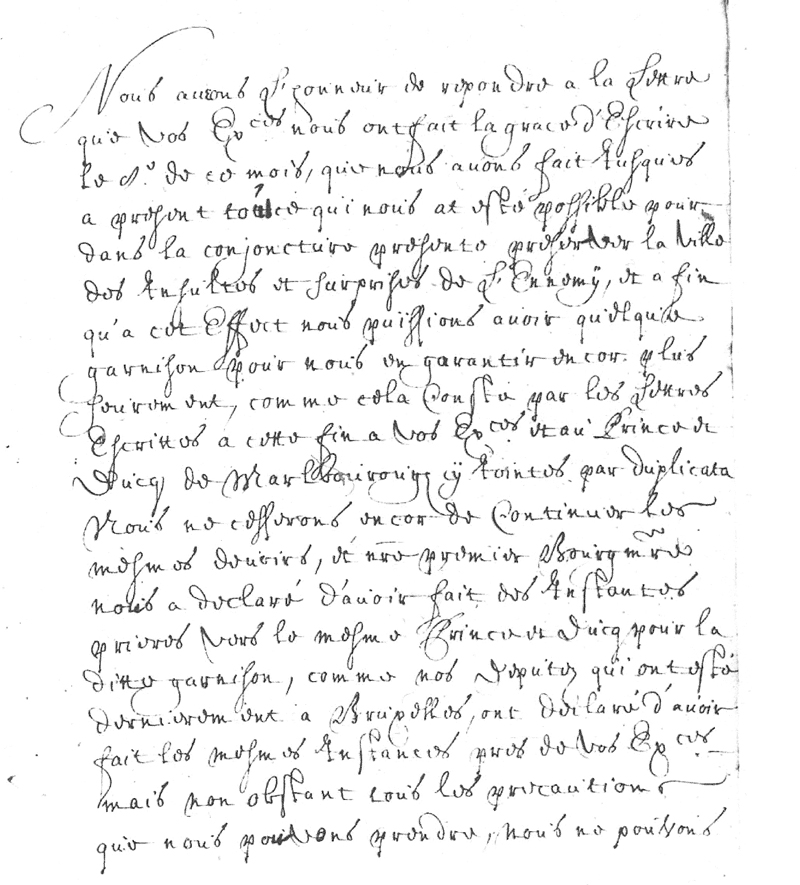 Nous auons l'honneur de repondre a la lettre
que Vos Exces nous ont fait la grace d'Escrire
le 8e de ce mois, que nous auons fait Iusques
a present tout ce qui nous at esté possible pour
dans la conjoncture presente preserver la Ville
des Insultes et surprises de l'Ennemÿ, et a fin
qu'a cet Effect nous puissions auoir quelque
garnison pour nous en garantir encor plus
seurement, comme cela Conste par les lettres
Escrittes a cette fin a Vos Exces et au Prince et
Ducq de Marlbourourg cÿ Iointes par duplicata
Nous ne cesserons encor de Continuer les
mesmes devoirs, et nre premier Bourgmre
nous a declaré d'auoir fait des Instantes
prieres vers le mesme Prince et Ducq pour la
ditte garnison, comme nos deputez qui ont esté
dernierement a Bruxelles, ont declaré d'auoir
fait les mesmes Instances pres de Vos Exces
mais non obstant tous les precautions
que nous pouvons prendre, nous ne pouvons